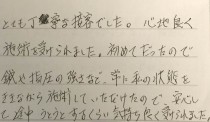 とても丁寧な接客でした。心地良く
施術を受けられました。初めてだったので
鍼や指圧の強さなど、常に私の状態を
ききながら施術していただけたので安心し
て途中うとうとするくらい気持ち良く受けられました。